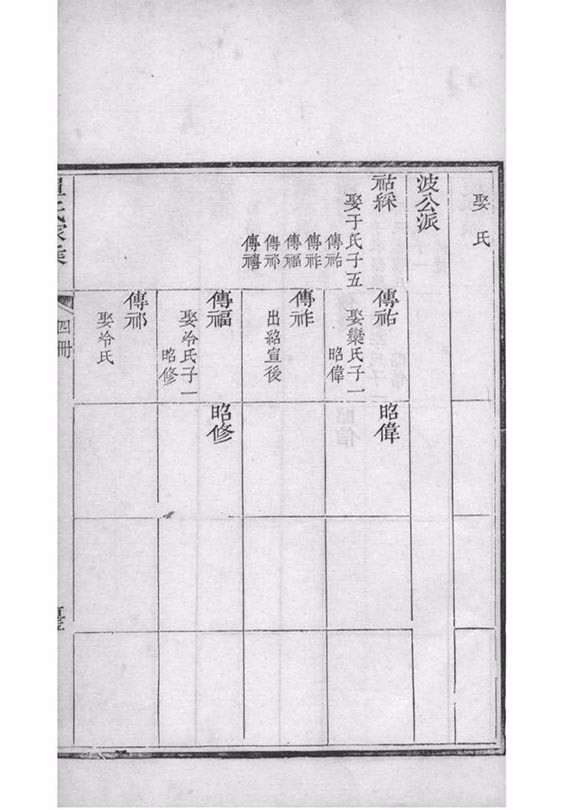 娶 氏
波公派
祜綵
娶于氏子五
傳祐
傳祚
傳福
傳祁
傳禧
傳祐
娶欒氏子一
昭偉
昭偉
傳祚
出紹宣後
傳福
娶冷氏子一
昭修
昭修
傳祁
娶冷氏
四冊